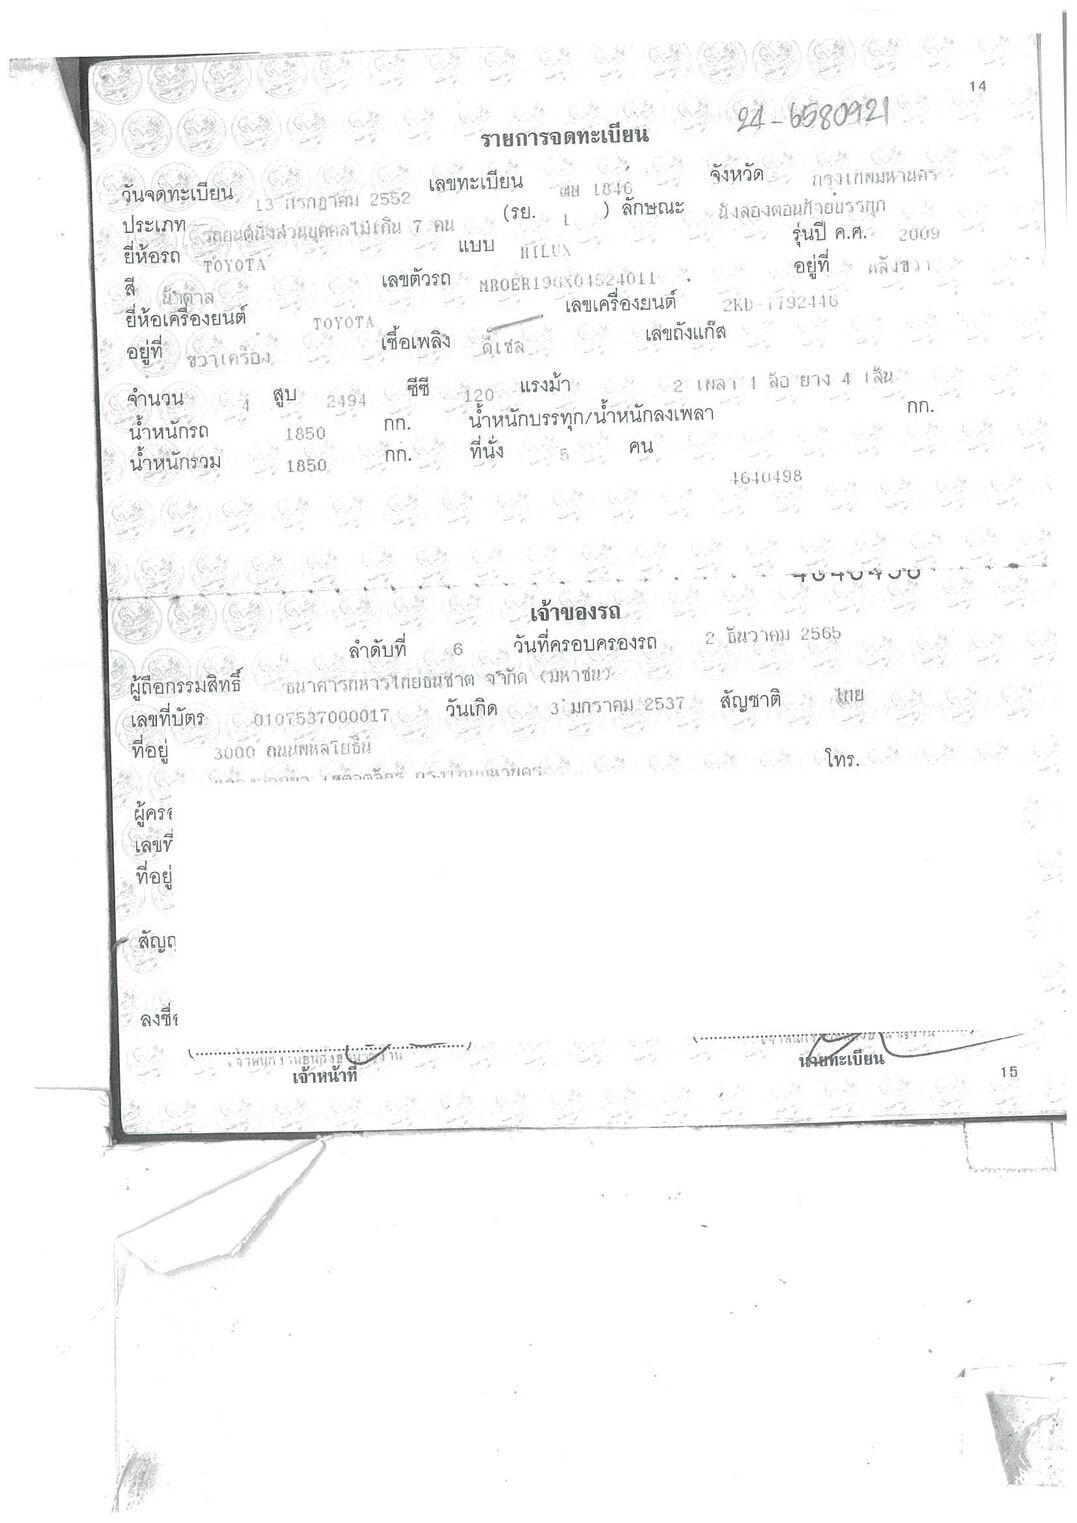 14
24-6580921
รายการจดทะเบียน
วันจดทะเบียน 13 กรกฎาคม 2552 เลขทะเบียน 1846 จังหวัด กรุงเทพมหานคร
ประเภท รถยนต์นั่งส่วนบุคคลไม่เกิน 7 คน (รย. 1 ) ลักษณะ นั่งสองตอนท้ายบรรทุก
ยี่ห้อรถ TOYOTA แบบ HILUX รุ่นปี ค.ศ. 2009
สี น้ำตาล เลขตัวรถ MR0ER19GX04524011 อยู่ที่ หลังขวา
ยี่ห้อเครื่องยนต์ TOYOTA เลขเครื่องยนต์ 2KD-7792446
อยู่ที่ ขวาเครื่อง เชื้อเพลิง ดีเซล เลขถังแก๊ส
จำนวน 4 สูบ 2494 ซีซี 120 แรงม้า 2 เพลา 4 ล้อ ยาง 4 เส้น
น้ำหนักรถ 1850 กก. น้ำหนักบรรทุก/น้ำหนักลงเพลา กก.
น้ำหนักรวม 1850 กก. ที่นั่ง 5 คน
4640498
เจ้าของรถ
ลำดับที่ 6 วันที่ครอบครองรถ 2 ธันวาคม 2565
ผู้ถือกรรมสิทธิ์ ธนาคารทหารไทยธนชาต จำกัด (มหาชน)
เลขที่บัตร 0107537000017 วันเกิด 3 มกราคม 2537 สัญชาติ ไทย
ที่อยู่ 3000 ถนนพหลโยธิน
เขตจตุจักร กรุงเทพมหานคร โทร.
ผู้คร
เลขที่
ที่อยู่
สัญ
ลงชื่
เจ้าหน้าที่ นายทะเบียน
15